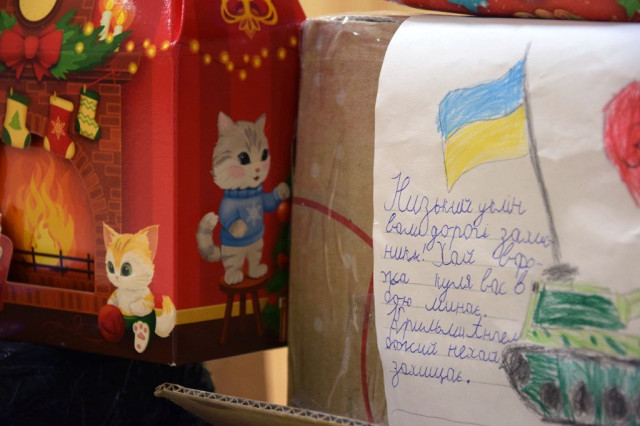 Низький уклін
вам дорогі захис-
ники. Хай воро-
жа куля вас в
бою минає.
Крильми Ангел
божий нехай
захищає.